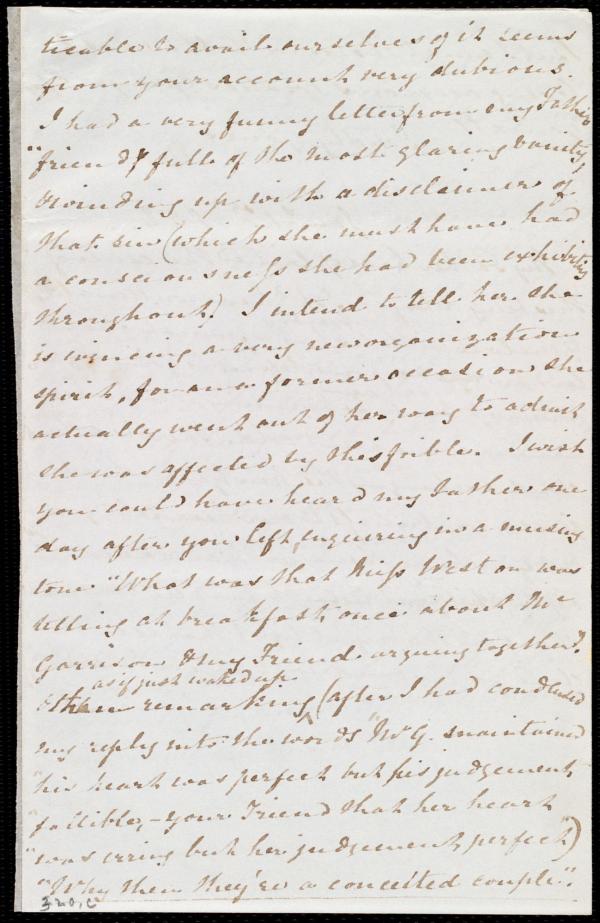 ticable to avail ourselves of it seems
from your account very dubious.
I had a very funny letter from my Father's
"friend", full of the most glaring vanity,
& winding up with a disclaimer of
that sin (which she must have had
a consciousness she had been exhibiting
throughout). I intend to tell her she
is evincing a very new organization
spirit, for on a former occasion she
actually went out of her way to admit
she was affected by this foible. I wish
you could have heard my Father one
day after you left, enquiring in a musing
tone "What was that Miss Weston was
telling at breakfast once about Mr
Garrison & my Friend arguing together?
as if just waked up
& then remarking (after I had condensed
my reply into the words "Mr G. maintained
"his heart was perfect but his judgement
"fallible, – your Friend that her heart
"was erring but her judgement perfect")
"Why then they're a conceited couple".
320, C